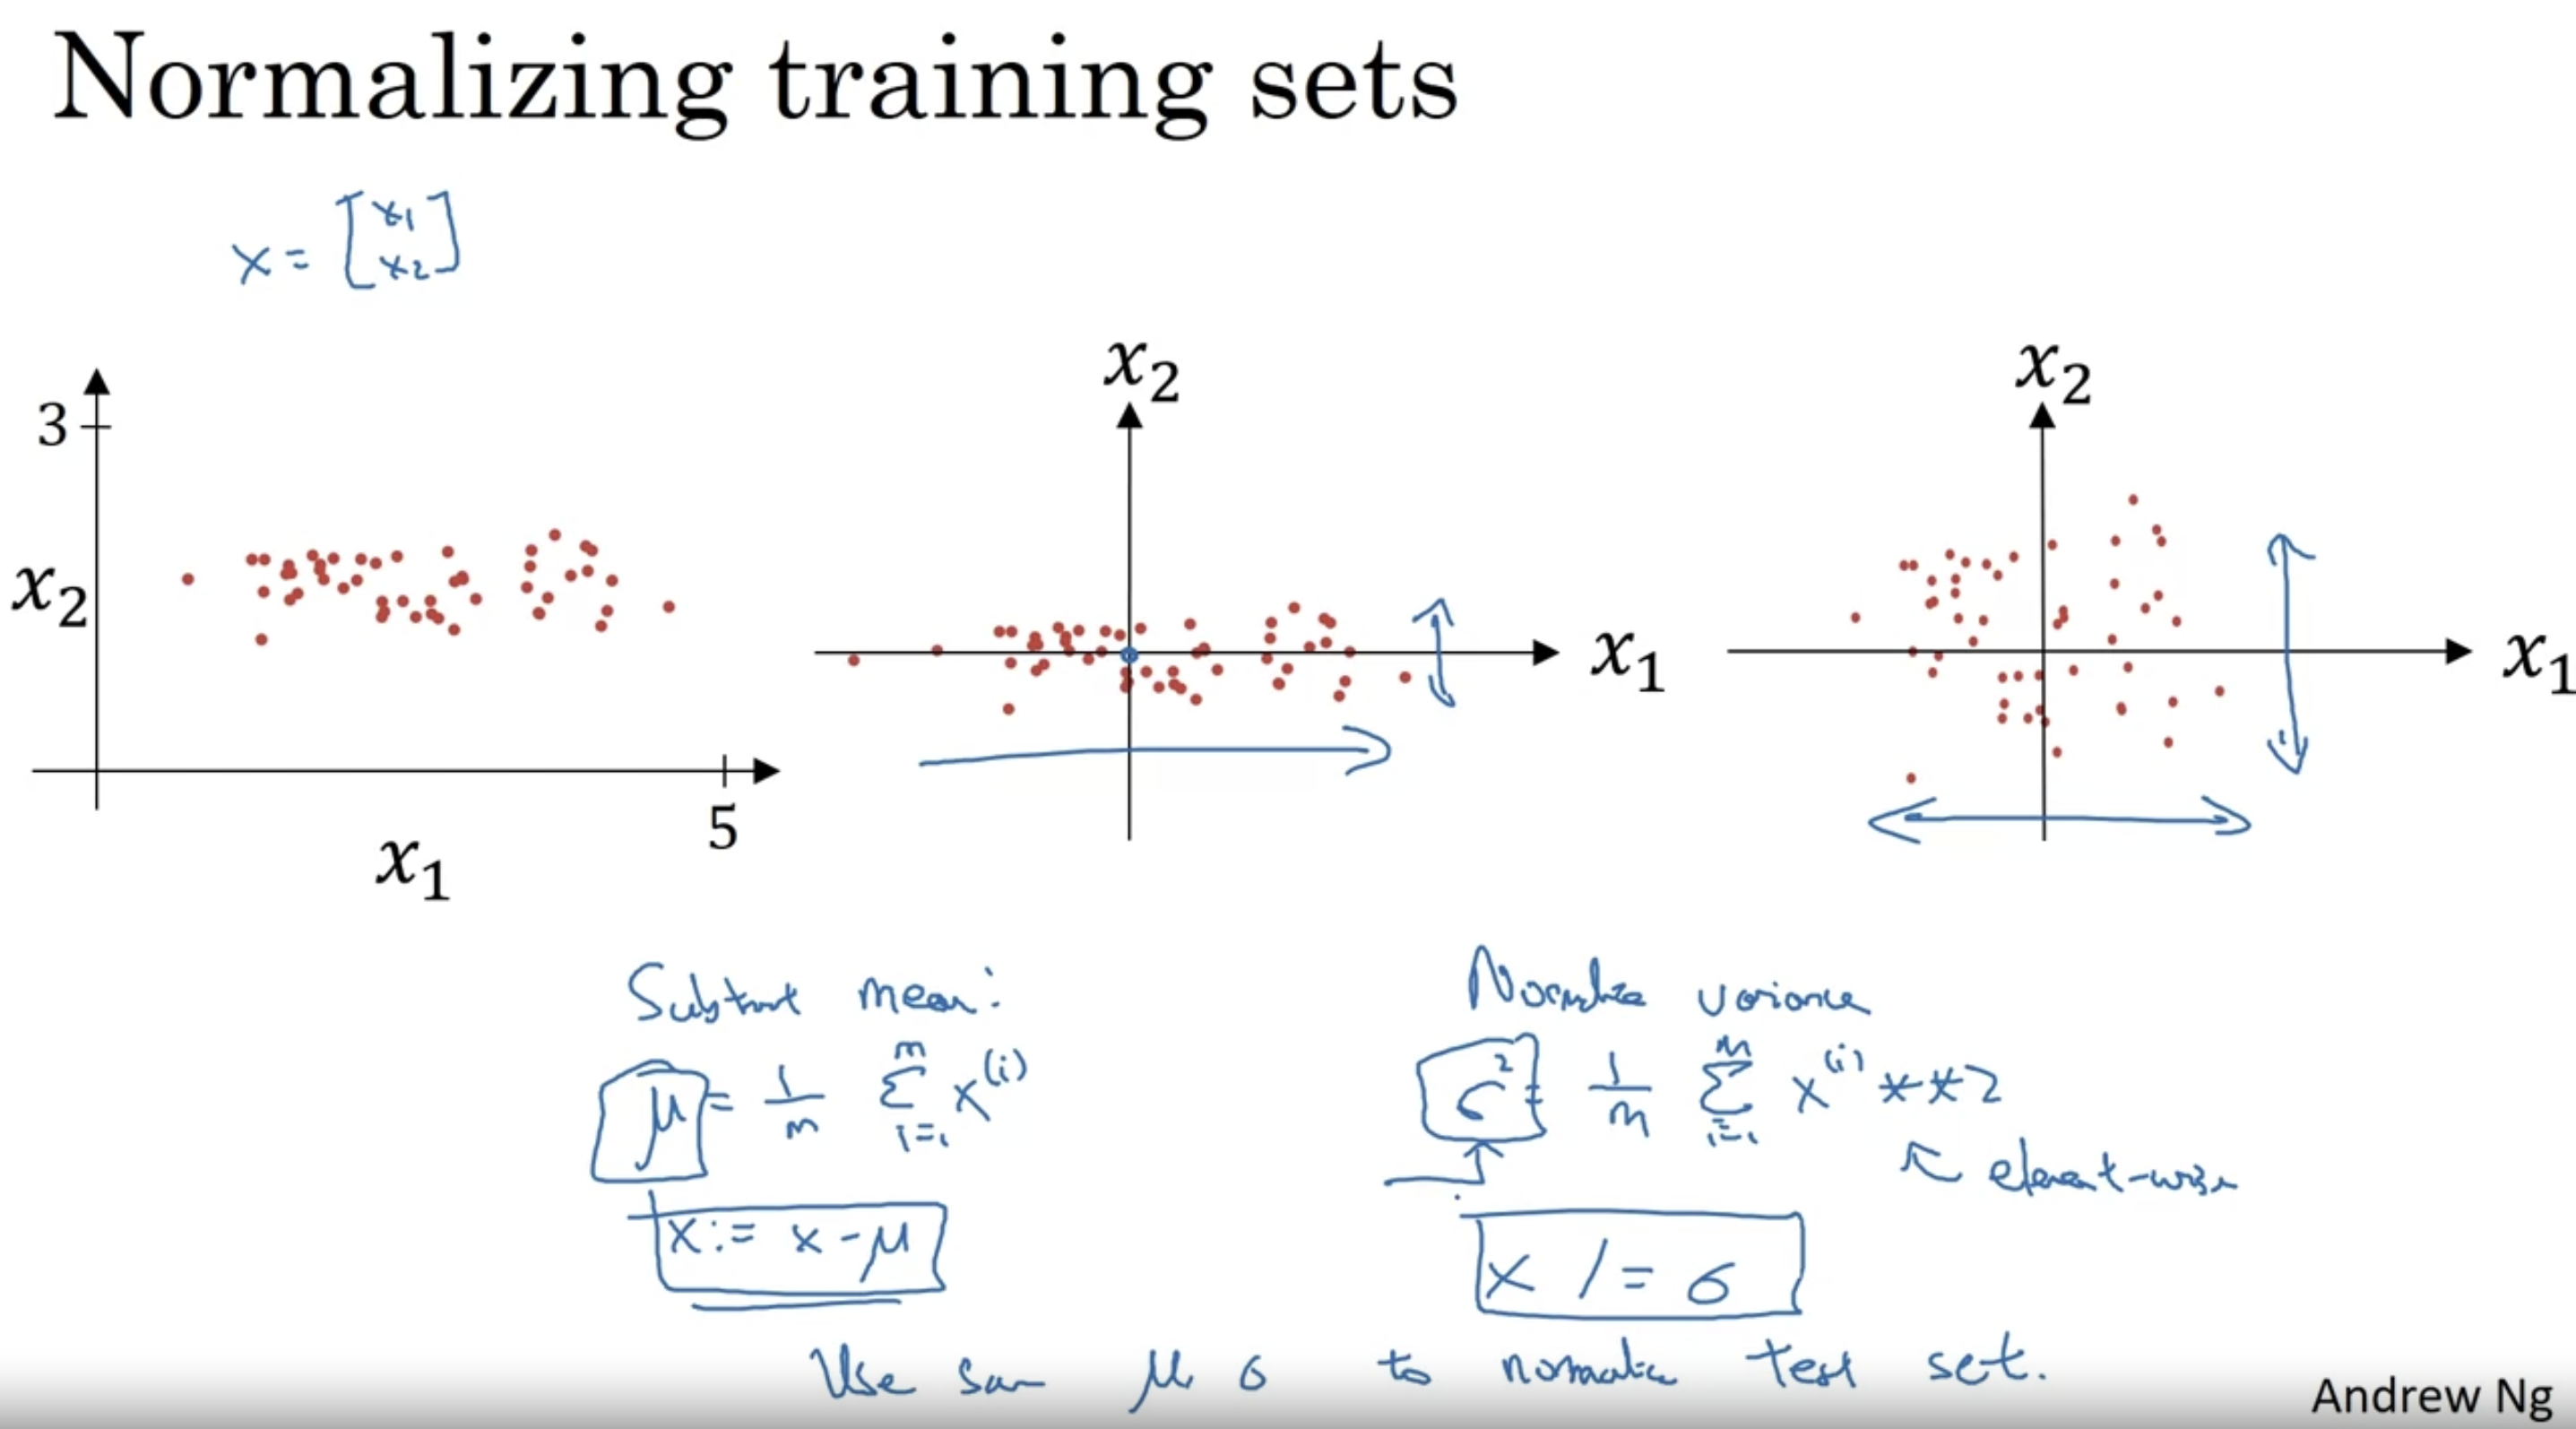 Normalizing training sets
x = [x1 x2]
3
x₂
5
x₁
x₂
x₁
x₂
x₁
Subtract mean:
μ = 1/m Σ_{i=1}^{m} x^(i)
x := x - μ
Normalize variance
σ² = 1/m Σ_{i=1}^{m} x^(i) ** 2
element-wise
x /= σ
Use same μ, σ to normalize test set.
Andrew Ng